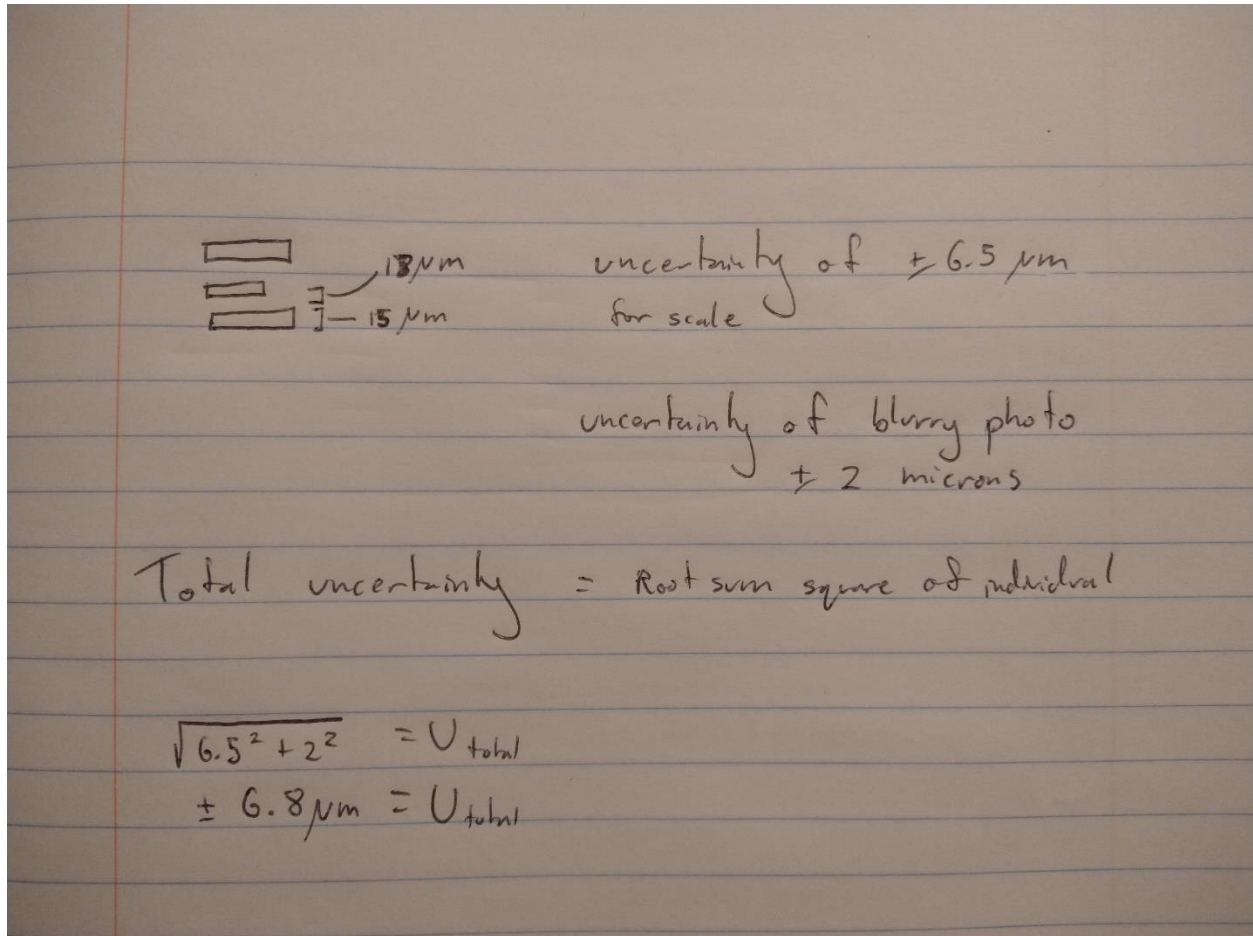 18 μm
15 μm
uncertainty of ± 6.5 μm
for scale
uncertainty of blurry photo
± 2 microns
Total uncertainty = Root sum square of individual
√6.5² + 2² = U total
± 6.8 μm = U total